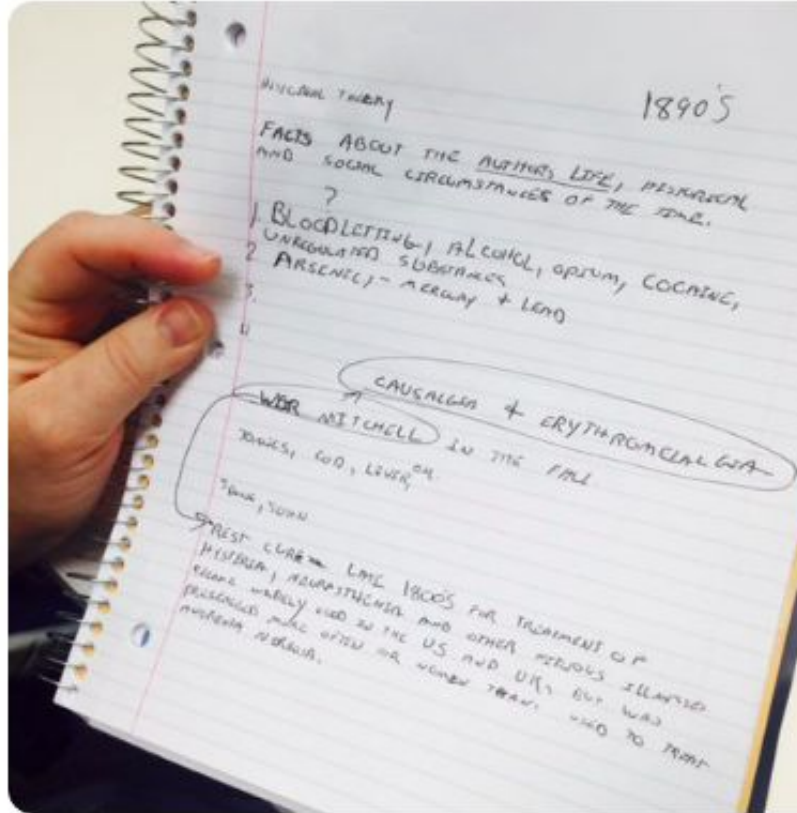 1890'S
HISTORICAL THEORY
FACTS ABOUT THE AUTHORS LIFE, HISTORICAL
AND SOCIAL CIRCUMSTANCES OF THE TIME.
?
1. BLOODLETTING, ALCOHOL, OPIUM, COCAINE,
UNREGULATED SUBSTANCES
2 ARSENIC, - MERCURY + LEAD
3.
4
CAUSALGIA + ERYTHROMELALGIA
MITCHELL IN THE FALL
TONICS, COD, LIVER, OIL
REST CURE LATE 1800'S FOR TREATMENT OF
HYSTERIA, NEURASTHENIA AND OTHER NERVOUS ILLNESSES
WIDELY USED IN THE US AND UK, BUT WAS
PRESCRIBED MORE OFTEN FOR WOMEN THAN USED TO TREAT
NERVOSA.